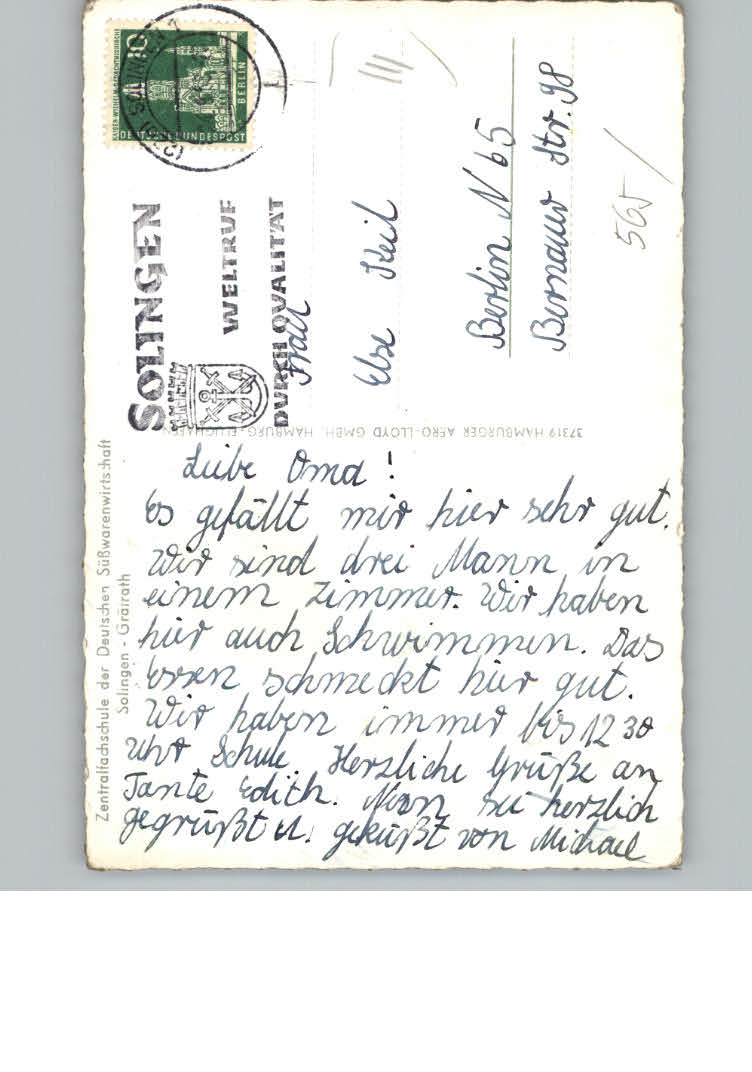 Liebe Oma!
Es gefällt mir hier sehr gut.
Wir sind drei Mann in
einem Zimmer. Wir haben
hier auch Schwimmen. Das
Essen schmeckt hier gut.
Wir haben immer bis 12 30
Uhr Schule. Herzliche Grüße an
Tante Edith. Nun sei herzlich
gegrüßt u. geküßt von Michael
Zentralfachschule der Deutschen Süßwarenwirtschaft
Solingen - Gräfrath
37319 HAMBURGER AERO-LLOYD GMBH. HAMBURG-FLUGHAFEN
SOLINGEN
WELTRUF
DURCH QUALITÄT
10
BERLIN
DEUTSCHE BUNDESPOST
KAISER-WILHELM-GEDÄCHTNISKIRCHE
SOLINGEN
Frau
Else Keil
Berlin N 65
Bernauer Str. 98
565